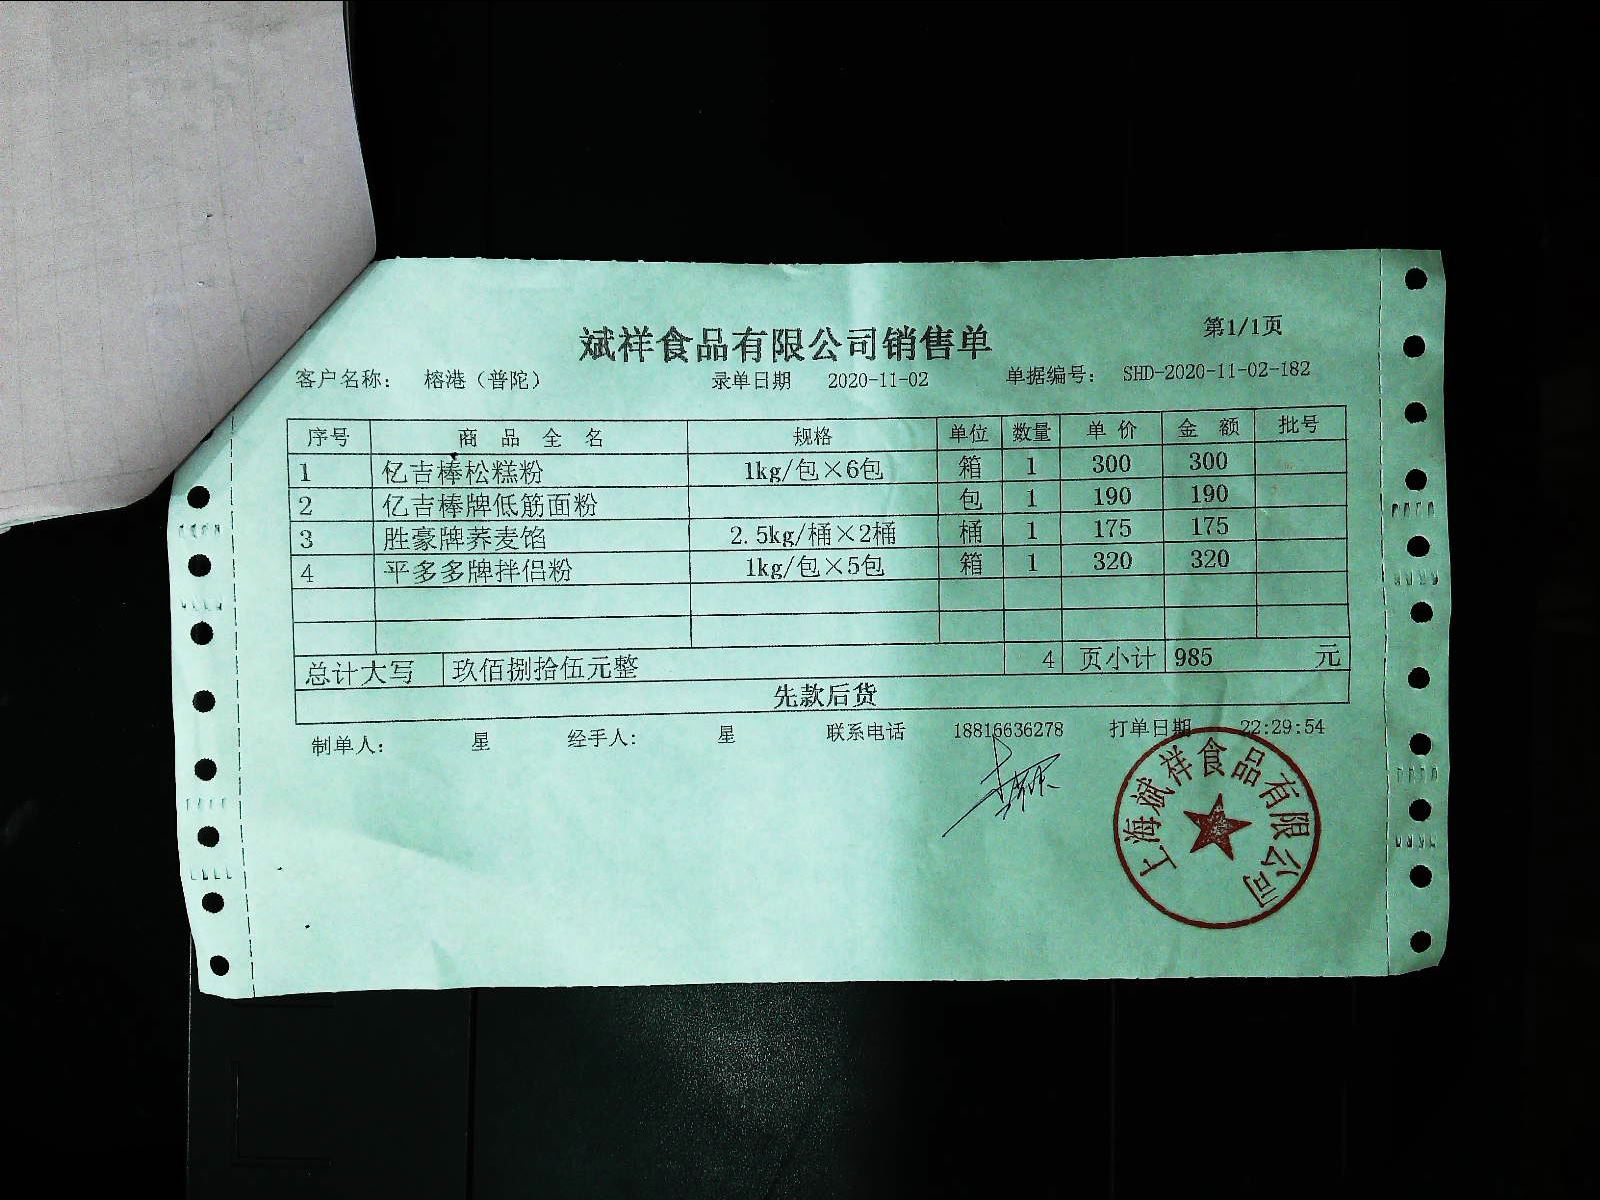 斌祥食品有限公司销售单
第1/1页
客户名称： 榕港（普陀） 录单日期 2020-11-02 单据编号： SHD-2020-11-02-182
序号 商 品 全 名 规格 单位 数量 单 价 金 额 批号
1 亿吉棒松糕粉 1kg/包×6包 箱 1 300 300
2 亿吉棒牌低筋面粉 包 1 190 190
3 胜豪牌荞麦馅 2.5kg/桶×2桶 桶 1 175 175
4 平多多牌拌侣粉 1kg/包×5包 箱 1 320 320
总计大写 玖佰捌拾伍元整 4 页小计 985 元
先款后货
制单人： 星 经手人： 星 联系电话 18816636278 打单日期 22:29:54
上海斌祥食品有限公司